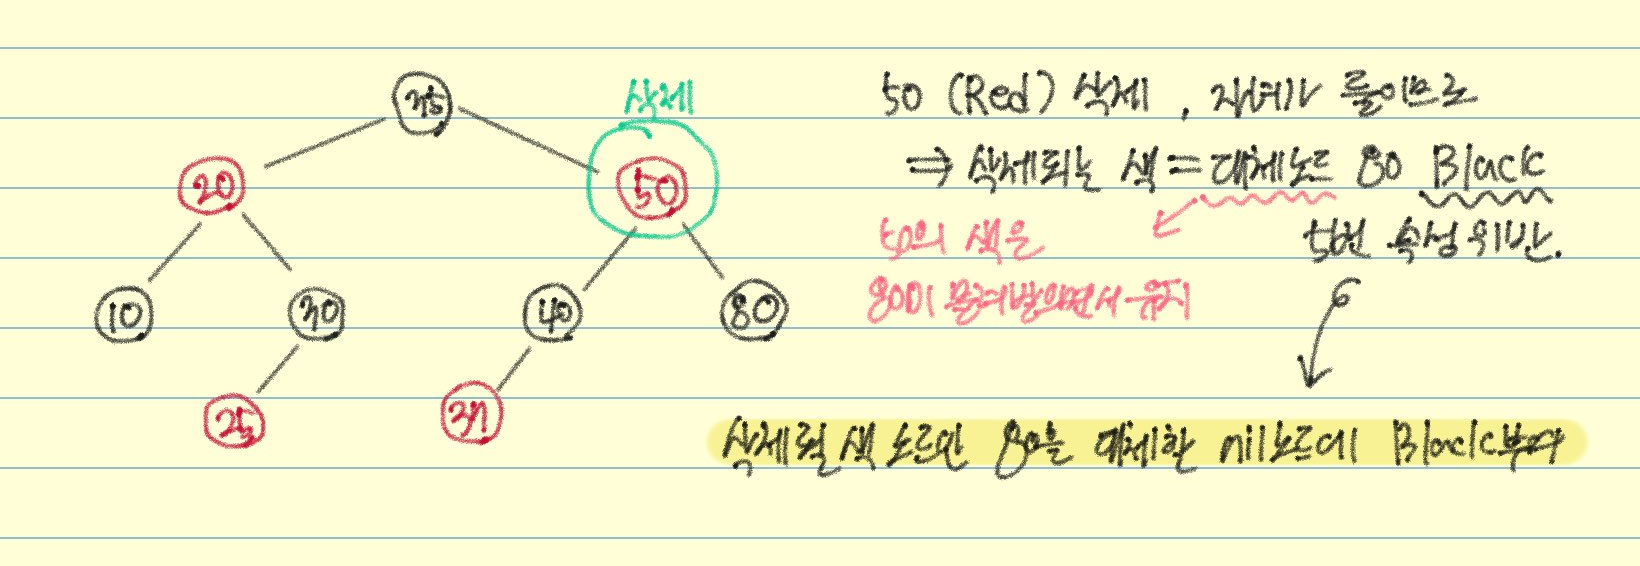 삭제
35
20
50
10
30
40
80
25
37
50 (Red) 삭제, 자녀가 둘이므로
⇒ 삭제되는 색 = 대체노드 80 Black
50의 색은
5번 속성 위반.
80이 물려받으면서 유지
삭제될 색 노드인 80을 대체한 nil노드에 Black부여